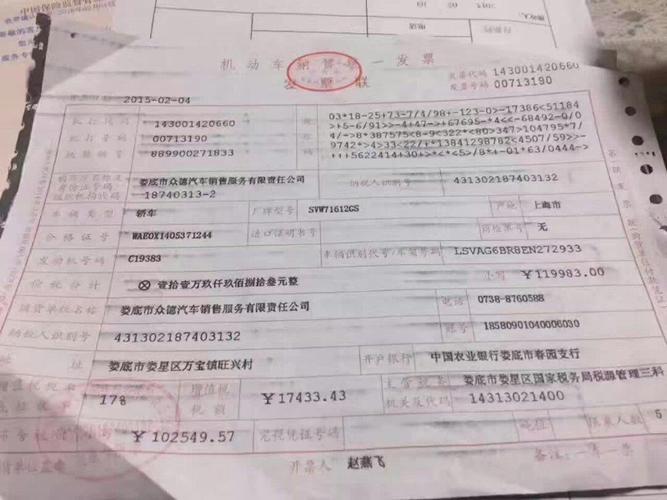 中国保险监督
机动车销售统一发票
发票联
发票代码 143001420660
发票号码 00713190
2015-02-04
机打代码 143001420660
机打号码 00713190
机器编号 889900271833
03*18-25+73-7/4/98+-123-0>-17386<51184
>+5-6/91>>-4+47->+67695-+4<<-68492-0/0
+/-<5622414+30+>*<*<5>/8*+-01*63/0444->
娄底市众德汽车销售服务有限责任公司
18740313-2
纳税人识别号 431302187403132
车辆类型 轿车 厂牌型号 SVW71612GS 产地 上海市
合格证号 WAEOX1405371244 进口证明书号 商检单号 无
发动机号码 C19383 车辆识别代号/车架号码 LSVAG6BR8EN272933
价税合计 ⊗壹拾壹万玖仟玖佰捌拾叁元整 小写 ¥119983.00
销货单位名称 娄底市众德汽车销售服务有限责任公司 电话 0738-8760588
纳税人识别号 431302187403132 账号 18580901040006030
娄底市娄星区万宝镇旺兴村 开户银行 中国农业银行娄底市春园支行
增值税税率 17% 增值税税额 ¥17433.43 主管税务机关及代码 娄底市娄星区国家税务局税源管理三科
14313021400
¥102549.57 完税凭证号码 吨位 限乘人数 5
开票人 赵燕飞 备注：一车一票